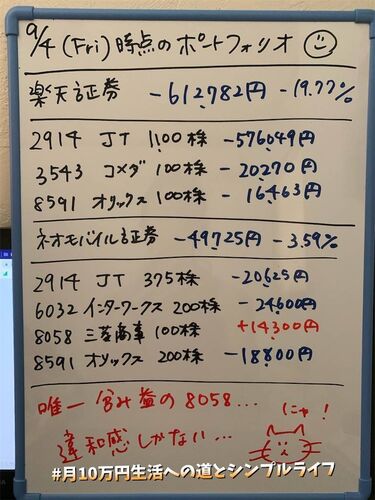 9/4 (Fri) 時点のポートフォリオ
楽天証券 -612,782円 -19.77%
2914 JT 1,100株 -576,049円
3543 コメダ 100株 -20,270円
8591 オリックス 100株 -16,463円
ネオモバイル証券 -49,725円 -3.59%
2914 JT 375株 -20,625円
6032 インターワークス 200株 -24,600円
8058 三菱商事 100株 +14,300円
8591 オリックス 200株 -18,800円
唯一含み益の8058...
にゃ!
違和感しかない...
#月10万円生活への道とシンプルライフ